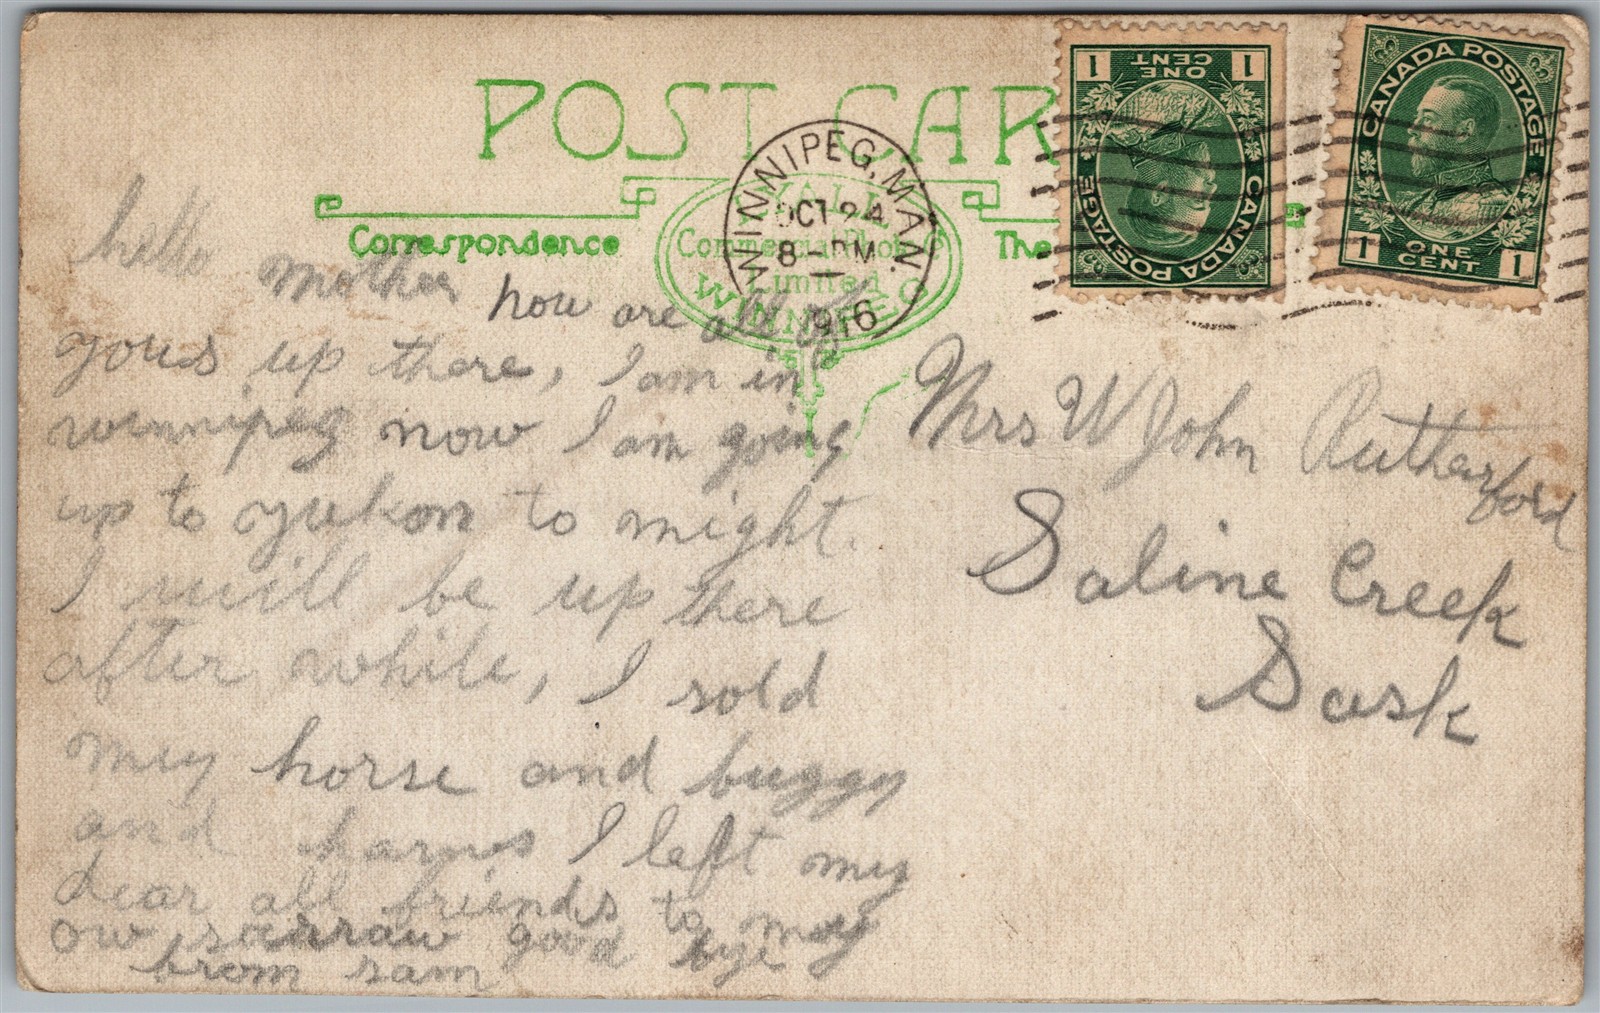 POST CAR
Correspondence
The
LYALL
Commercial Photo Co
Limited
WINNIPEG
WINNIPEG, MAN.
OCT 24
8 - PM
1916
ONE CENT
1 1
CANADA POSTAGE
CANADA POSTAGE
1 ONE CENT 1
hello mother how are all of
yous up there, I am in
winnipeg now I am going
up to yukon to might.
I will be up there
after while, I sold
mey horse and buggy
and harnes I left mey
dear all friends to mey
ow sarraw good bye
brom sam
Mrs W John Rutherford
Saline Creek
Sask